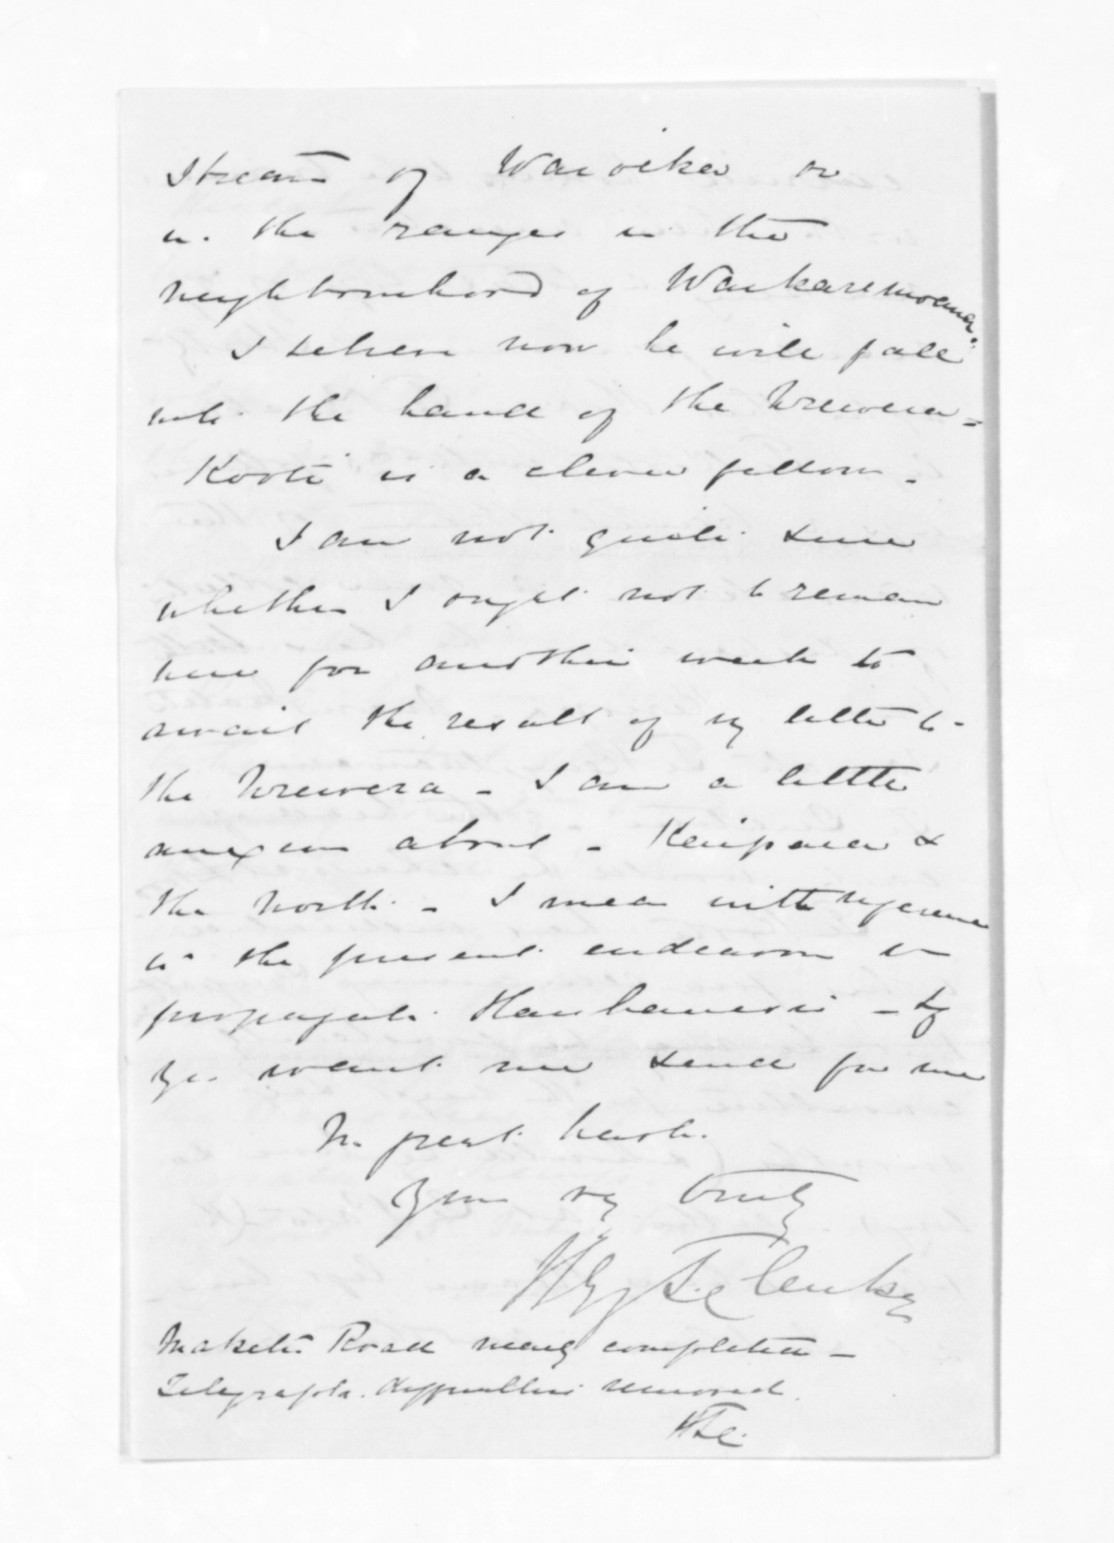 Stream of Waioeka or
in the ranges in the
neighbourhood of Waikaremoana.
I believe now he will fall
into the hands of the Urewera -
Kooti is a clever fellow -
I am not quite sure
whether I ought not to remain
here for another week to
await the result of my letter to
the Urewera - I am a little
anxious about - Kaipara &
the North - I mean with reference
to the present endeavour to
propagate Hauhauism - If
you want me send for me
In great haste
Yours very truly
H T Clarke
Maketu Road nearly completed -
Telegraph difficulties removed.
HTC.